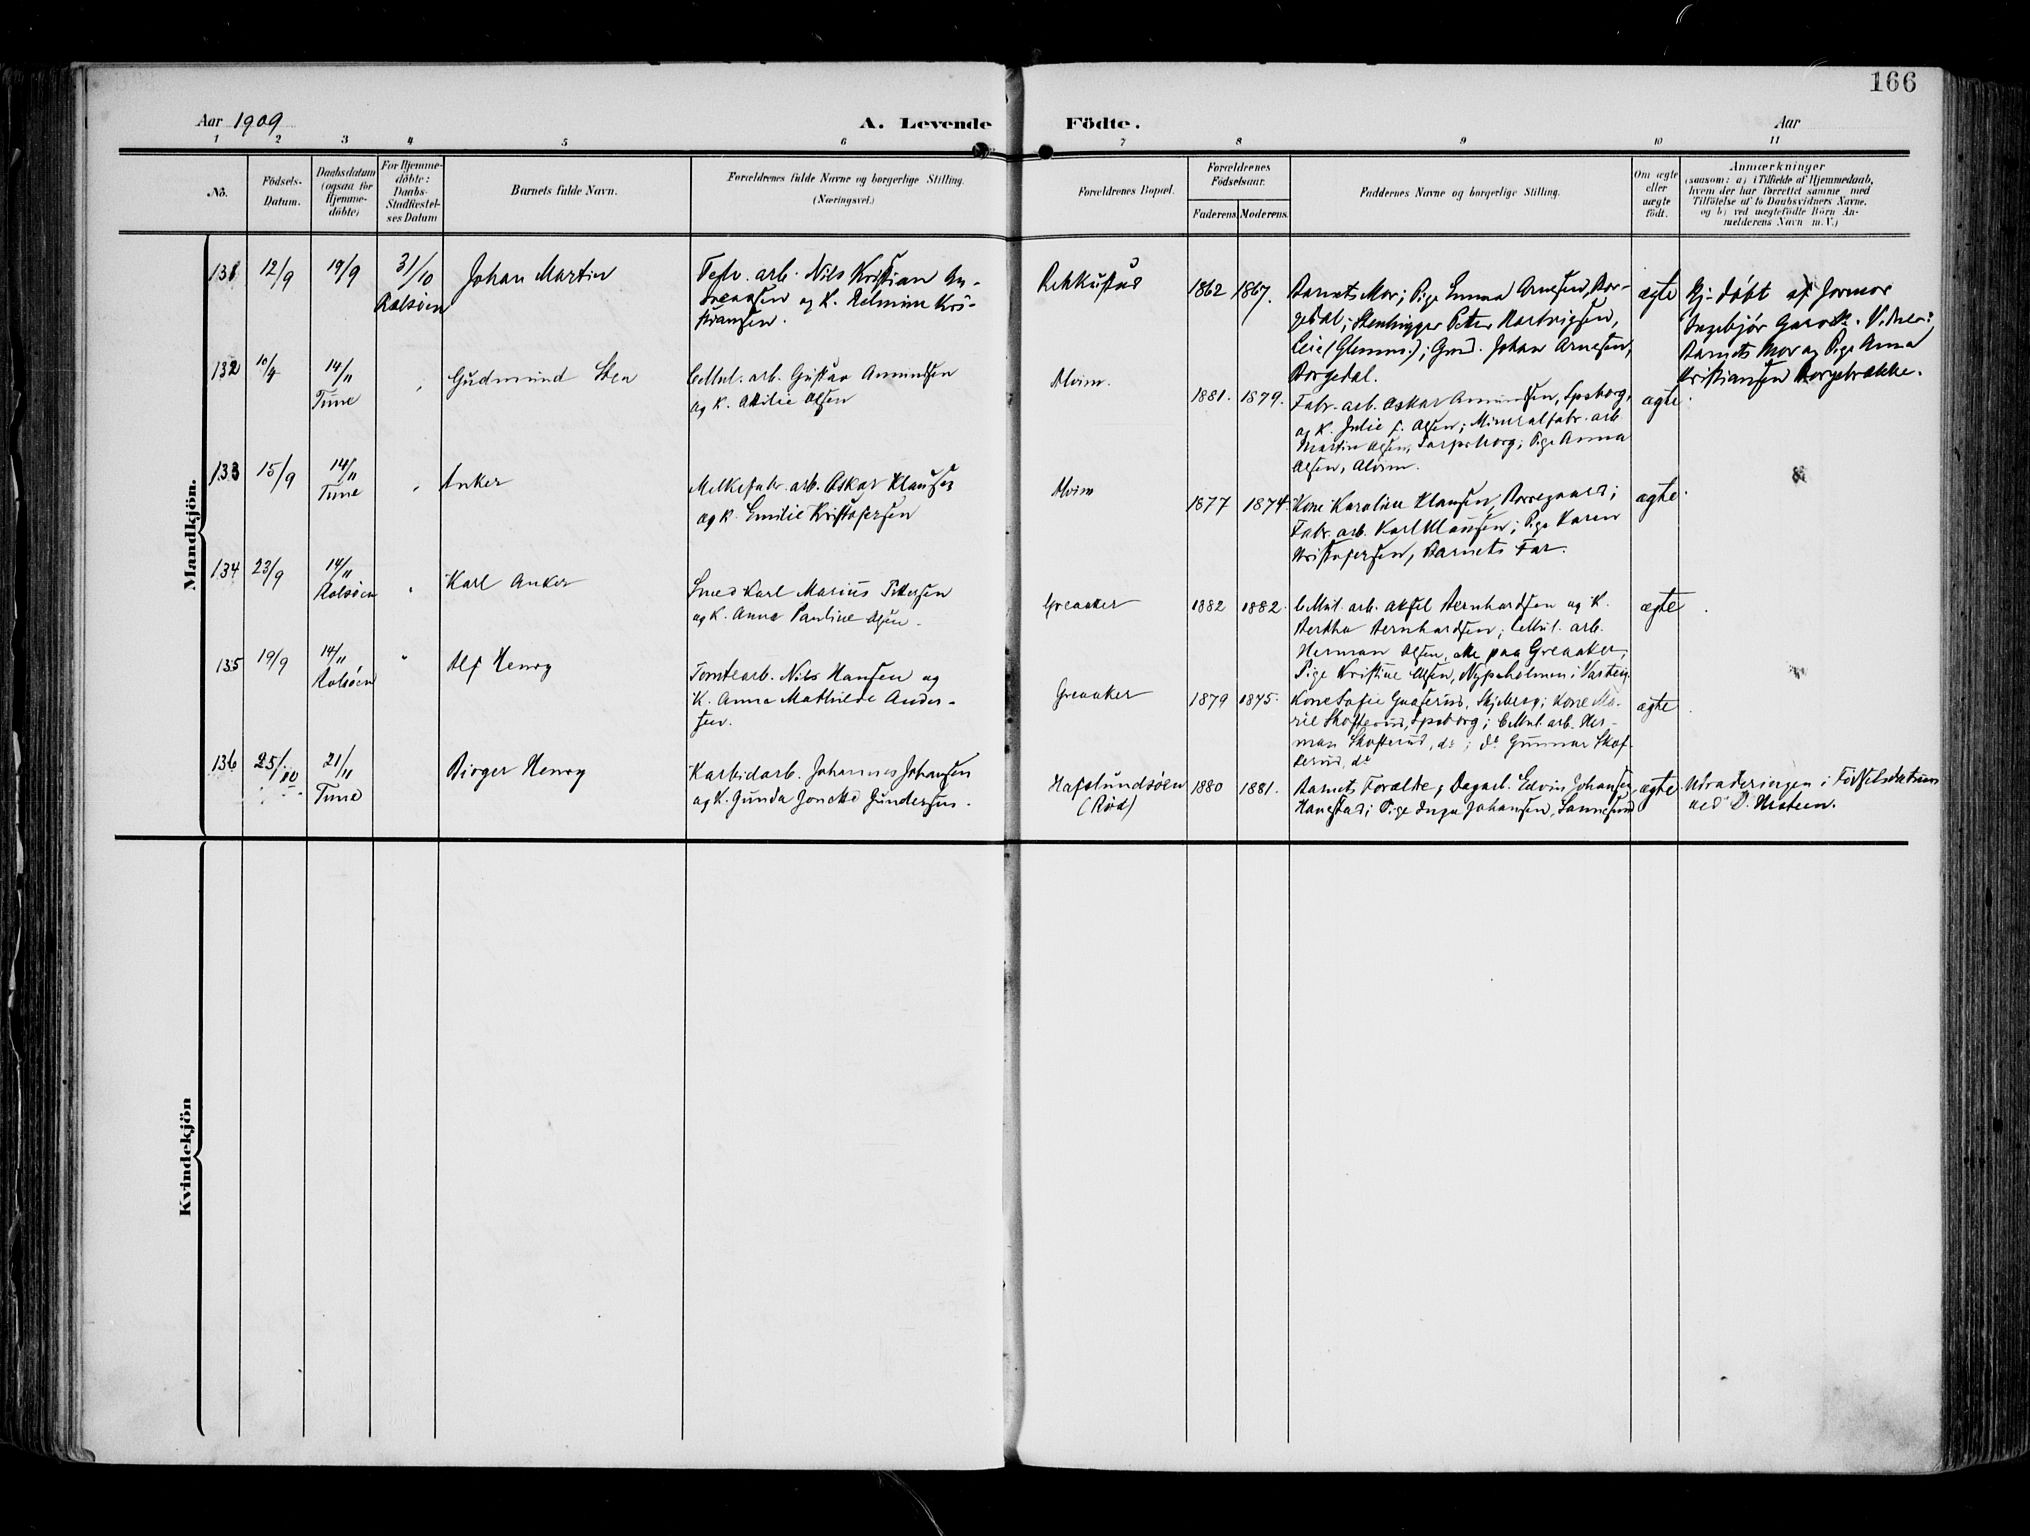 166
Aar 1909
A. Levende Födte.
Aar
1 2 3 4 5 6 7 8 9 10 11
No.
Födsels-
Datum.
Daabsdatum
(ogsaa for
Hjemme-
döbte)
For Hjemme-
döbte:
Daabs-
Stadfæstel-
ses Datum
Barnets fulde Navn.
Forældrenes fulde Navne og borgerlige Stilling.
(Næringsvei.)
Forældrenes Bopæl.
Forældrenes
Födselsaar.
Faderens. Moderens.
Faddernes Navne og borgerlige Stilling.
Om ægte
eller
uægte
født.
Anmærkninger
(saasom: a) i Tilfælde af Hjemmedaab,
hvem der har forrettet samme med
Tilföielse af to Daabsvidners Navne,
og b) ved uægtefödte Börn An-
melderens Navn m. V.)
Mandkjön.
131 12/9 19/9 31/10
Rolsøen
Johan Martin
arb. Nils Kristian An-
dreassen og K. Helmine Kri-
stiansen.
1862 1867.
Barnets Mor; Pige Emma Arnesen, Bor-
gedal; Stenhugger Peter Hartvigsen,
Leie (Glemm.); Johan Arnesen,
Borgedal.
ægte
Hj. døbt af Jormor
Ingebjør Vidner:
Barnets Mor og Pige Anna
Kristiansen Borgebrække.
132 14/11
Tune
Gudmund
Cellul. arb. Gustav Amundsen
og K. Olsen
Alvim.
1881. 1879.
Fabr. arb. Oskar Amundsen, Spsborg,
og K. Julie F. Olsen; Mineralfabr. arb.
Martin Olsen, Sarpsborg; Pige Anna
Olsen, Alvim.
ægte
133 15/9 14/11
Tune
Anker
Melkefabr. arb. Oskar Klausen
og K. Emilie Kristofersen
Alvim
1877 1874.
Kone Karoline Klausen, Borregaard;
Fabr. arb. Karl Klausen; Pige Karen
Kristofersen, Barnets Far.
ægte
134 23/9 14/11
Rolsøen
Karl Anker
Smed Karl Marius Pettersen
og K. Anna Pauline Olsen.
Greaaker
1882 1882.
Cellul. arb. Aksel Bernhardsen og K.
Bertha Bernhardsen; Cellul. arb.
Herman Olsen, alle paa Greaaker;
Pige Kristine Olsen, Nypeholmen i Varteig
ægte
135 19/9 14/11
Rolsøen
Alf Henry
Tomtearb. Nils Hansen og
K. Anna Mathilde Ander-
sen.
Greaaker
1879 1875.
Kone Sofie Skjeberg; Kone Ma-
rie Skofterud, Spsborg; Cellul. arb. Her-
man Skofterud, do; do Gunnar Skof-
terud, do
ægte
136 25/10 21/11
Tune
Birger Henry
Karbidarb. Johannes Johansen
og K. Gunda Gundersen.
Hafslundsøen
(Rød)
1880 1881.
Barnets Forældre; Dagarb. Edvin Johansen,
Hanestad; Pige Inga Johansen, Sannesund
ægte
Udraderingen i Fødselsdatum
ved
Kvindekjön